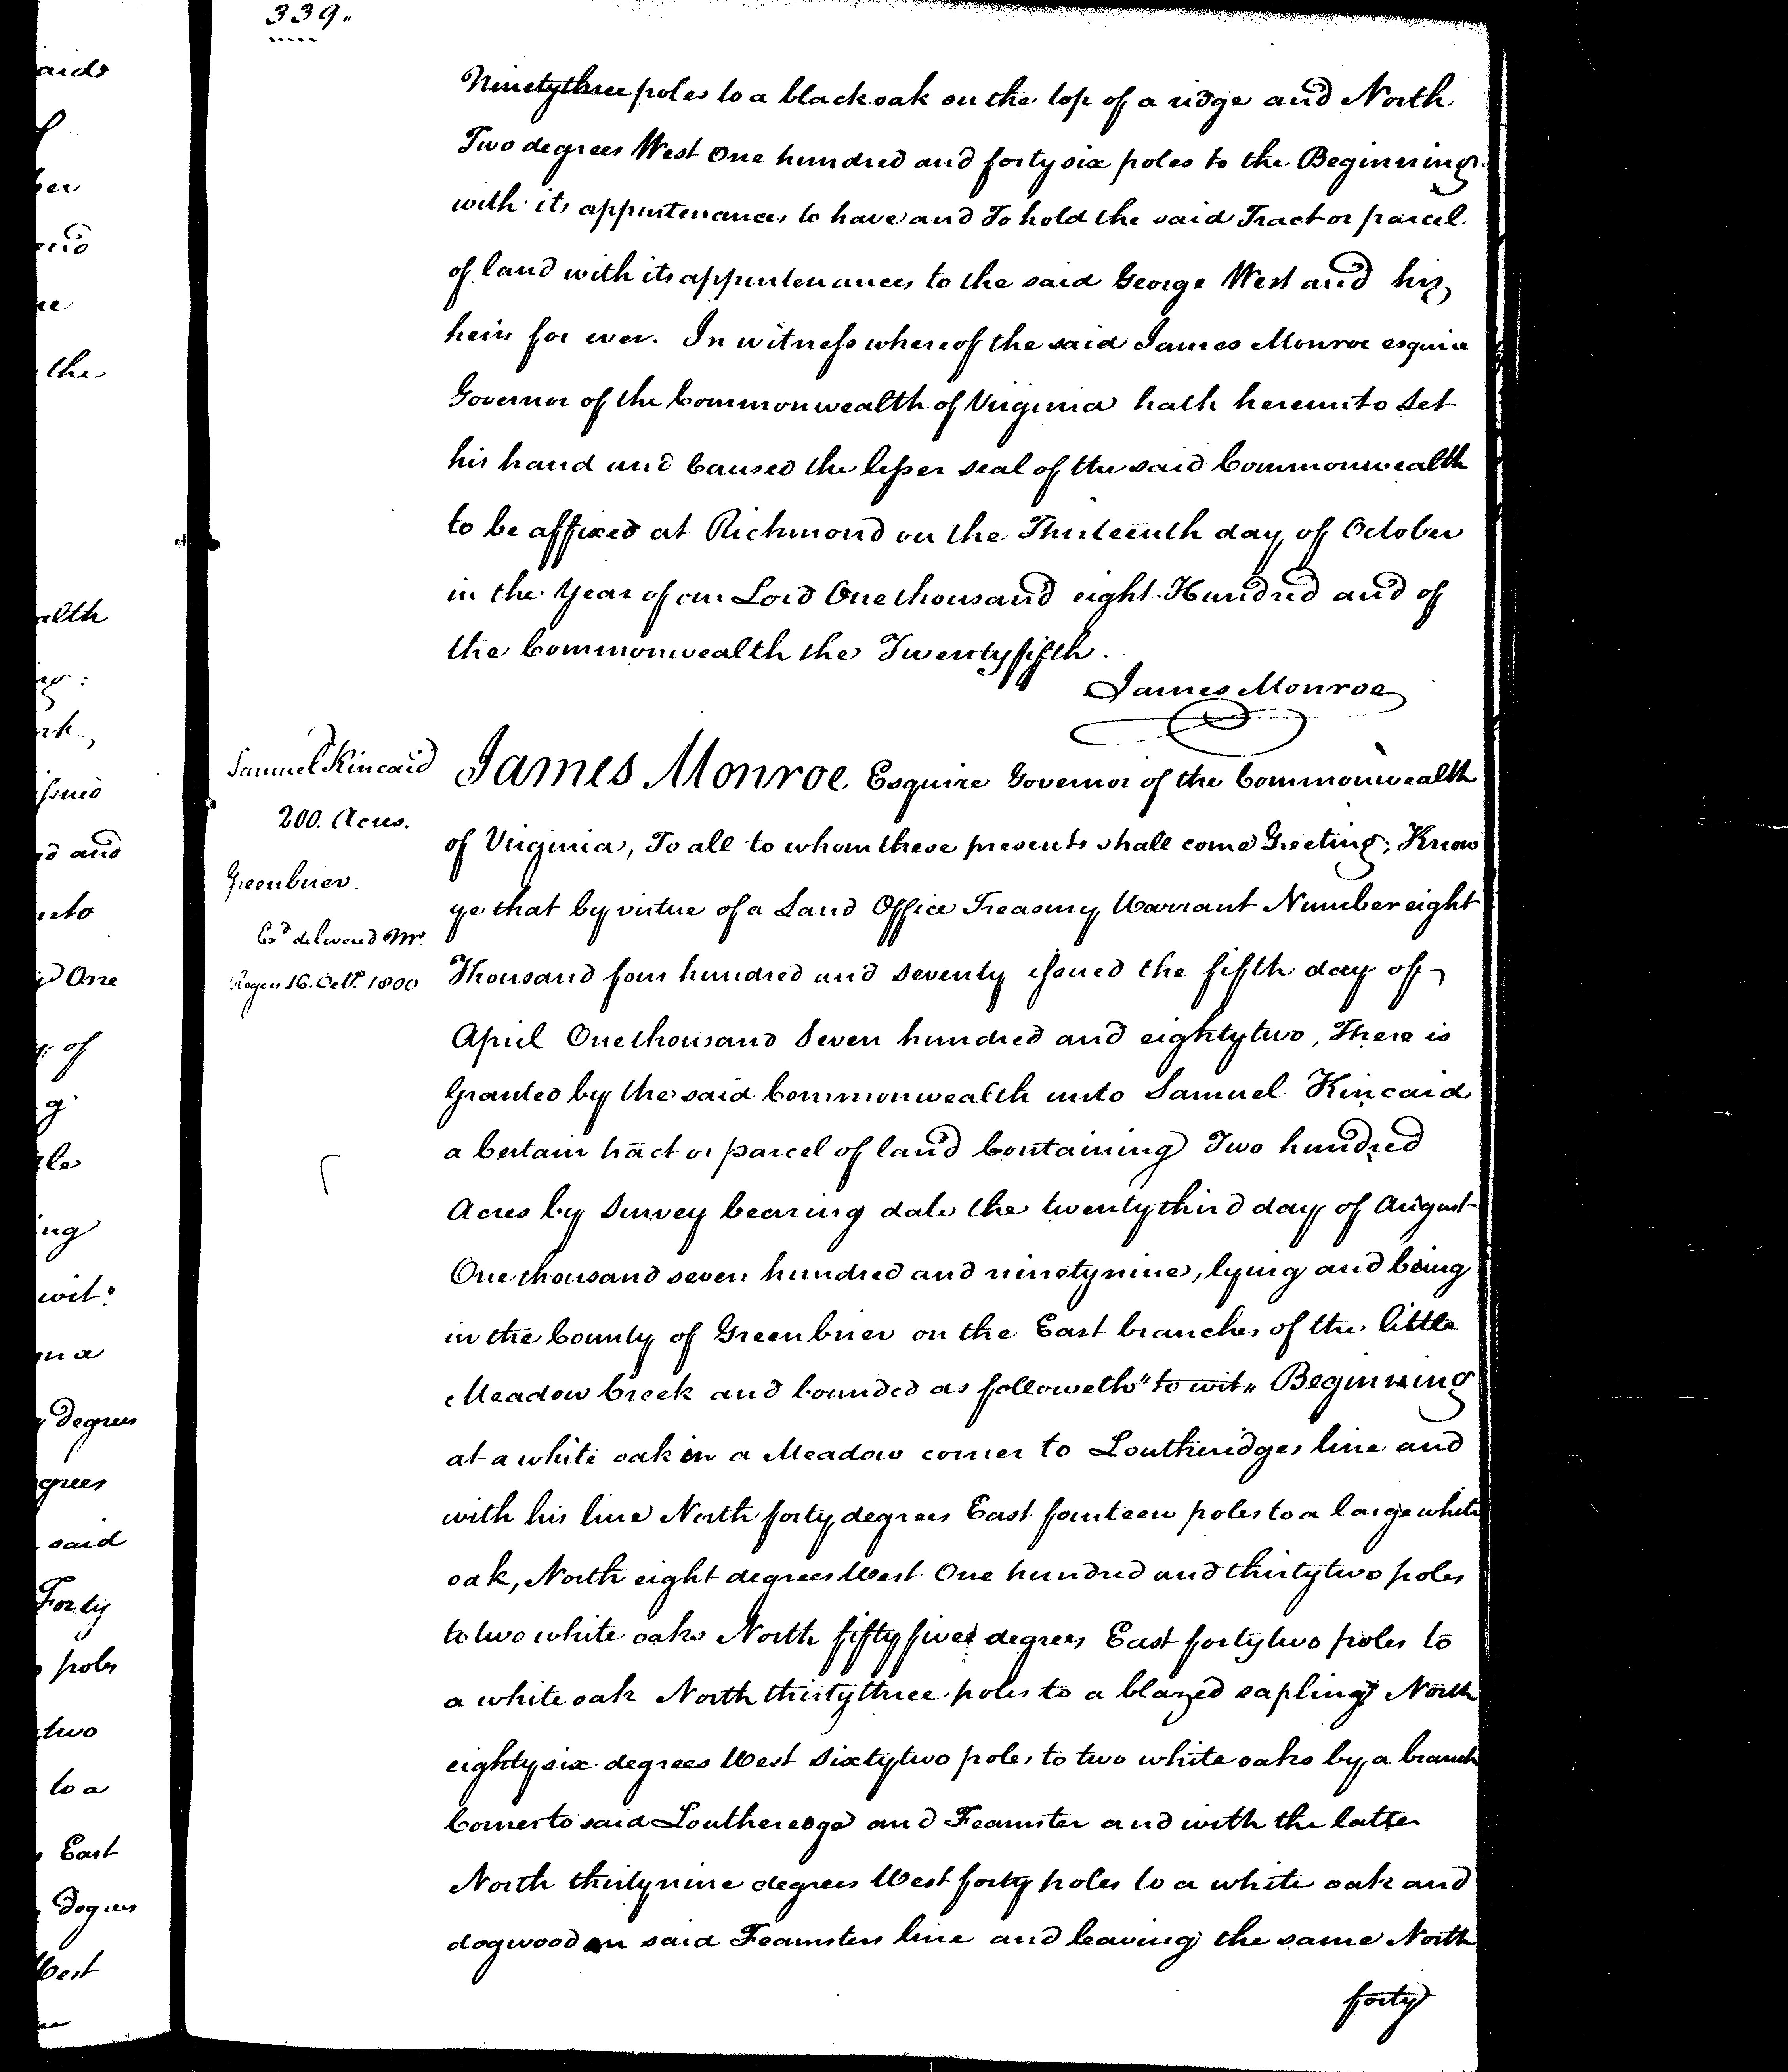 339.
Ninetythree poles to a black oak on the top of a ridge and North
Two degrees West One hundred and forty six poles to the Beginning
with its appurtenances to have and To hold the said Tract or parcel
of land with its appurtenances to the said George West and his
heirs for ever. In witness whereof the said James Monroe esquire
Governor of the Commonwealth of Virginia hath hereunto Set
his hand and Caused the lesser seal of the said Commonwealth
to be affixed at Richmond on the Thirteenth day of October
in the Year of our Lord One thousand eight Hundred and of
the Commonwealth the Twenty fifth.
James Monroe
Samuel Kincaid
200. Acres.
Greenbrier.
Exd. delivered Mr.
16. Octr. 1800
James Monroe, Esquire Governor of the Commonwealth
of Virginia, To all to whom these presents shall come Greeting; Know
ye that by virtue of a Land Office Treasury Warrant Number eight
Thousand four hundred and seventy issued the fifth day of
April One thousand Seven hundred and eightytwo, There is
Granted by the said Commonwealth unto Samuel Kincaid
a Certain tract or parcel of land Containing Two hundred
Acres by Survey bearing date the twentythird day of August
One thousand seven hundred and ninetynine, lying and being
in the County of Greenbrier on the East branches of the little
Meadow Creek and bounded as followeth "to wit" Beginning
at a white oak in a Meadow corner to Loutheridges line and
with his line North forty degrees East fourteen poles to a large white
oak, North eight degrees West One hundred and thirtytwo poles
to two white oaks North fifty five degrees East fortytwo poles to
a white oak North thirtythree poles to a blazed sapling North
eightysix degrees West Sixtytwo poles to two white oaks by a branch
Corner to said Loutheredge and Feamster and with the latter
North thirtynine degrees West forty poles to a white oak and
dogwood on said Feamsters line and leaving the same North
forty
the
and
One
of
degrees
said
Forty
poles
two
to a
East
degrees
West